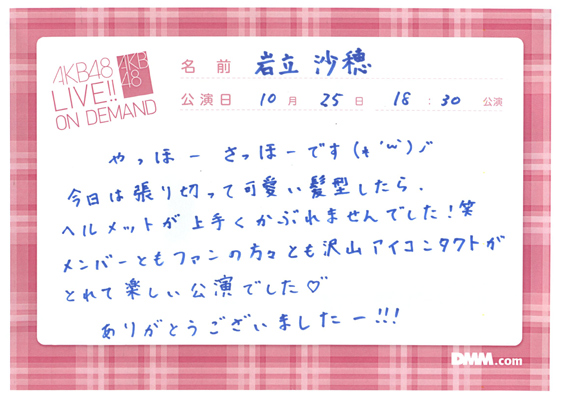 AKB48
LIVE!!
ON DEMAND
AKB
48
名前 岩立 沙穂
公演日 10月 25日 18:30 公演
やっほー さっほーです(*'ω')ノ
今日は張り切って可愛い髪型したら、
ヘルメットが上手くかぶれませんでした!笑
メンバーともファンの方々とも沢山アイコンタクトが
とれて楽しい公演でした♡
ありがとうございましたー!!!
DMM.com